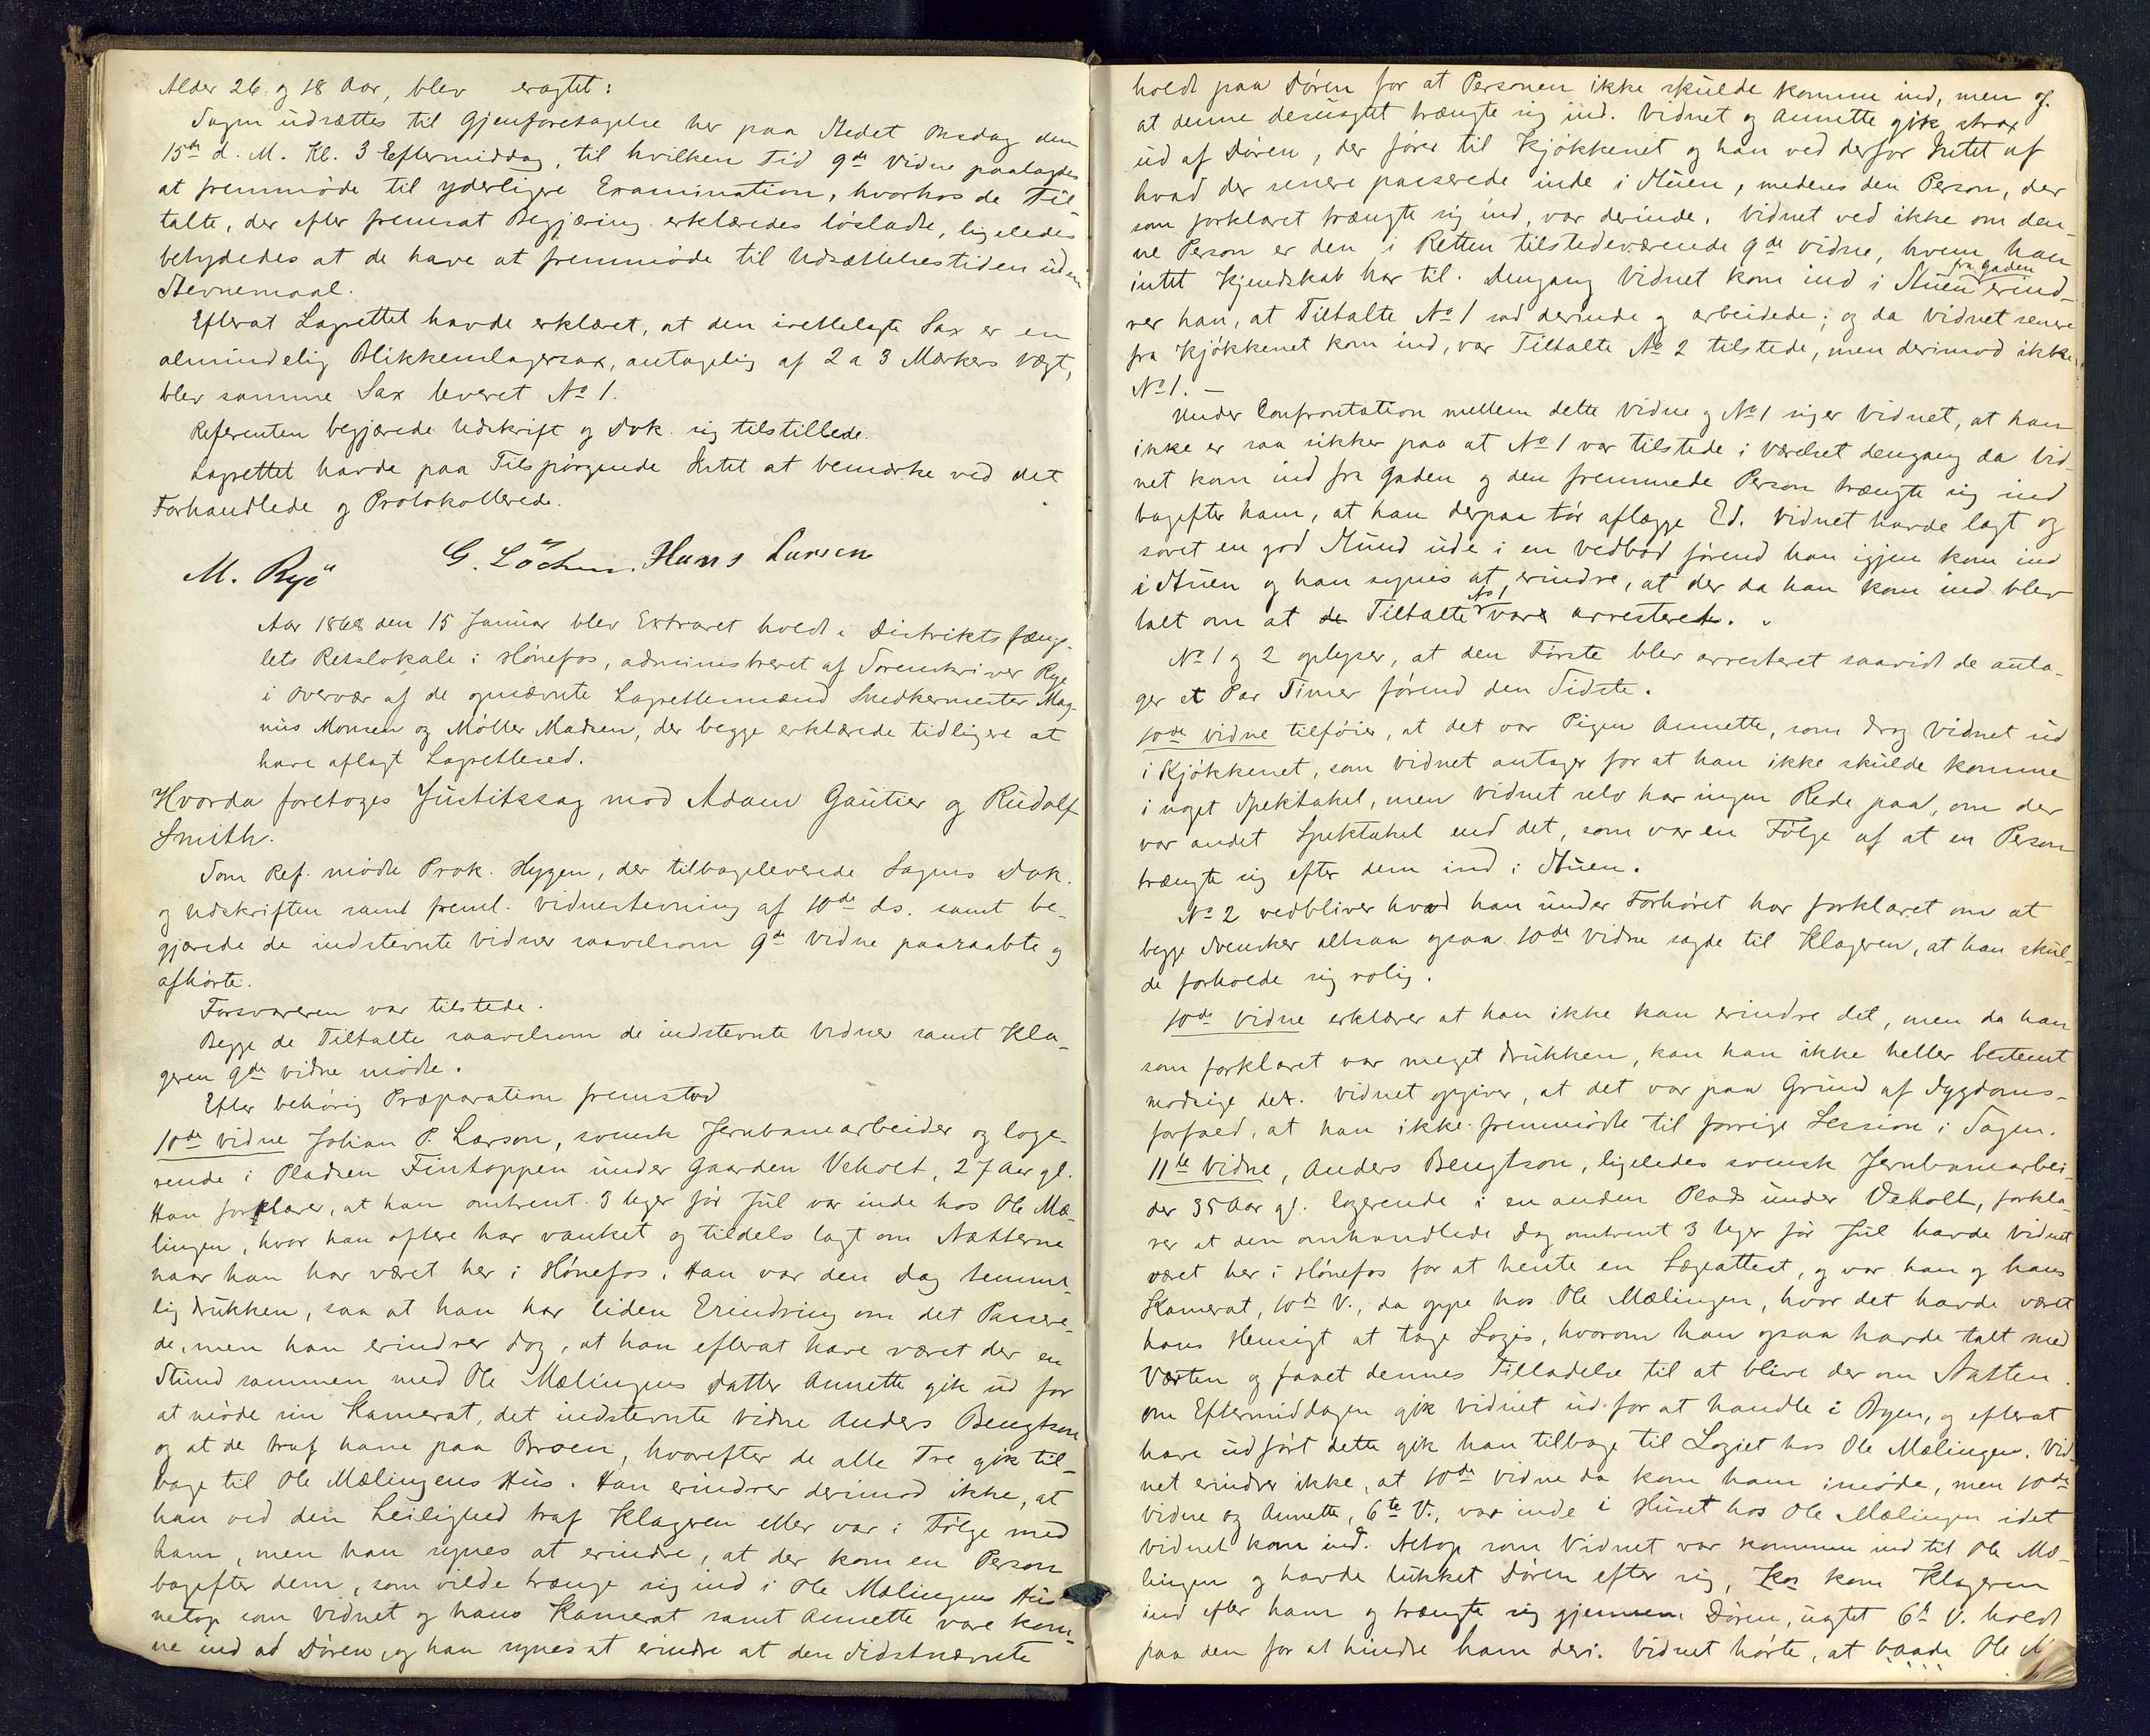 Alder 26 og 18 Aar, blev eragtet:
Sagen udsættes til Gjenforetagelse her paa Stedet Onsdag den
15de d. M. Kl. 3 Eftermiddag, til hvilken Tid 9de Vidne paalagdes
at fremmøde til yderligere Examination, hvorhos de Til-
talte, der efter fremsat Begjæring erklæredes løsladte, ligeledes
betydedes at de have at fremmøde til Udsættelsestiden uden
Stevnemaal.
Efterat Lagrettet havde erklæret, at den irettelagte Sax er en
almindelig Blikkenslagersax, antagelig af 2 a 3 Markers Vægt,
blev samme Sax leveret No 1.
Referenten begjærede Udskrift og Dok. sig tilstillede.
Lagrettet havde paa Tilspørgende Intet at bemærke ved det
Forhandlede og Protokollerede.
M. Rye G. Løchen. Hans Larsen
Aar 1868 den 15 Januar blev Extraret holdt i Distriktsfæng-
lets Retslokale i Hønefos, administreret af Sorenskriver Rye
i Overvær af de opnævnte Lagrettemænd Snedkermester Mag-
nus Monsen og Møller Madsen, der begge erklærede tidligere at
have aflagt Lagretteed.
Hvorda foretoges Justitssag mod Adam Gautier og Rudolf
Smith.
Som Ref. mødte Prok. Hygen, der tilbageleverede Sagens Dok.
og Udskriften samt freml. Vidnestevning af 10de ds. samt be-
gjærede de indstevnte Vidner saavelsom 9de Vidne paaraabte og
afhørte.
Forsvareren var tilstede.
Begge de Tiltalte saavelsom de indstevnte Vidner samt Kla-
geren 9de Vidne mødte.
Efter behørig Præparation fremstod
10de Vidne Johan P. Larson, svensk Jernbanearbeider og loge-
rende i Pladsen Fintoppen under Gaarden Veholt, 27 Aar gl.
Han forklarer, at han omtrent 3 Uger før Jul var inde hos Ole Mæ-
lingen, hvor han oftere har vanket og tildels lagt om Nætterne
naar han har været her i Hønefos. Han var den Dag temme-
lig drukken, saa at han har liden Erindring om det Passere-
de, men han erindrer dog, at han efterat have været der en
Stund sammen med Ole Mælingens Datter Annette gik ud for
at møde sin Kamerat, det indstevnte Vidne Anders Bengtson
og at de traf ham paa Broen, hvorefter de alle Tre gik til-
bage til Ole Mælingens Hus. Han erindrer derimod ikke, at
han ved den Leilighed traf Klageren eller var i Følge med
ham, men han synes at erindre, at der kom en Person
bagefter dem, som vilde trænge sig ind i Ole Mælingens Hus
netop som Vidnet og hans Kamerat samt Annette vare kom-
ne ind ad Døren, og han synes at erindre at den Sidstnævnte
holdt paa Døren for at Personen ikke skulde komme ind, men og
at denne desuagtet trængte sig ind. Vidnet og Annette gik strax
ud af Døren, der fører til Kjøkkenet og han ved derfor Intet af
hvad der senere passerede inde i Stuen, medens den Person, der
som forklaret trængte sig ind, var derinde. Vidnet ved ikke om den-
ne Person er den i Retten tilstedeværende 9de Vidne, hvem han
intet Kjendskab har til. Dengang Vidnet kom ind i Stuen fra Gaden erind-
rer han, at Tiltalte No 1 sad derinde og arbeidede; og da Vidnet senere
fra Kjøkkenet kom ind, var Tiltalte No 2 tilstede, men derimod ikke
No 1. —
Under Confrontation mellem dette Vidne og No 1 siger Vidnet, at han
ikke er saa sikker paa at No 1 var tilstede i Værelset dengang da Vid-
net kom ind fra Gaden og den fremmede Person trængte sig ind
bagefter ham, at han derpaa tør aflægge Ed. Vidnet havde lagt og
sovet en god Stund ude i en Vedbod førend han igjen kom ind
i Stuen og han synes at erindre, at der da han kom ind blev
talt om at de Tiltalte No 1 var arresteret.
No 1 og 2 oplyser, at den Første blev arresteret saavidt de anta-
ger et Par Timer førend den Sidste.
10de Vidne tilføier, at det var Pigen Annette, som drog Vidnet ud
i Kjøkkenet, som Vidnet antager for at han ikke skulde komme
i noget Spektakel, men Vidnet selv har ingen Rede paa, om der
var andet Spektakel end det, som var en Følge af at en Person
trængte sig efter dem ind i Stuen.
No 2 vedbliver hvad han under Forhøret har forklaret om at
begge Svensker altsaa ogsaa 10de Vidne sagde til Klageren, at han skul-
de forholde sig rolig.
10de Vidne erklærer at han ikke kan erindre det, men da han
som forklaret var meget drukken, kan han ikke heller bestemt
modsige det. Vidnet opgiver, at det var paa Grund af Sygdoms-
forfald, at han ikke fremmødte til forrige Session i Sagen.
11te Vidne, Anders Bengtson, ligeledes svensk Jernbanearbei-
der 35 Aar gl. logerende i en anden Plads under Veholt, forkla-
rer at den omhandlede Dag omtrent 3 Uger før Jul havde Vidnet
været her i Hønefos for at hente en Lægeattest, og var han og hans
Kamerat, 10de V., da oppe hos Ole Mælingen, hvor det havde været
hans Hensigt at tage Logis, hvorom han ogsaa havde talt med
Værten og faaet dennes Tilladelse til at blive der om Natten.
Om Eftermiddagen gik Vidnet ud for at handle i Byen, og efterat
have udført dette gik han tilbage til Logiet hos Ole Mælingen. Vid-
net erindrer ikke, at 10de Vidne da kom ham imøde, men 10de
Vidne og Annette, 6te V., var inde i Huset hos Ole Mælingen idet
Vidnet kom ind. Netop som Vidnet var kommen ind til Ole Mæ-
lingen og havde lukket Døren efter sig, kom Klageren
ind efter ham og trængte sig gjennem Døren, uagtet 6te V. holdt
paa den for at hindre ham deri. Vidnet hørte, at baade Ole M